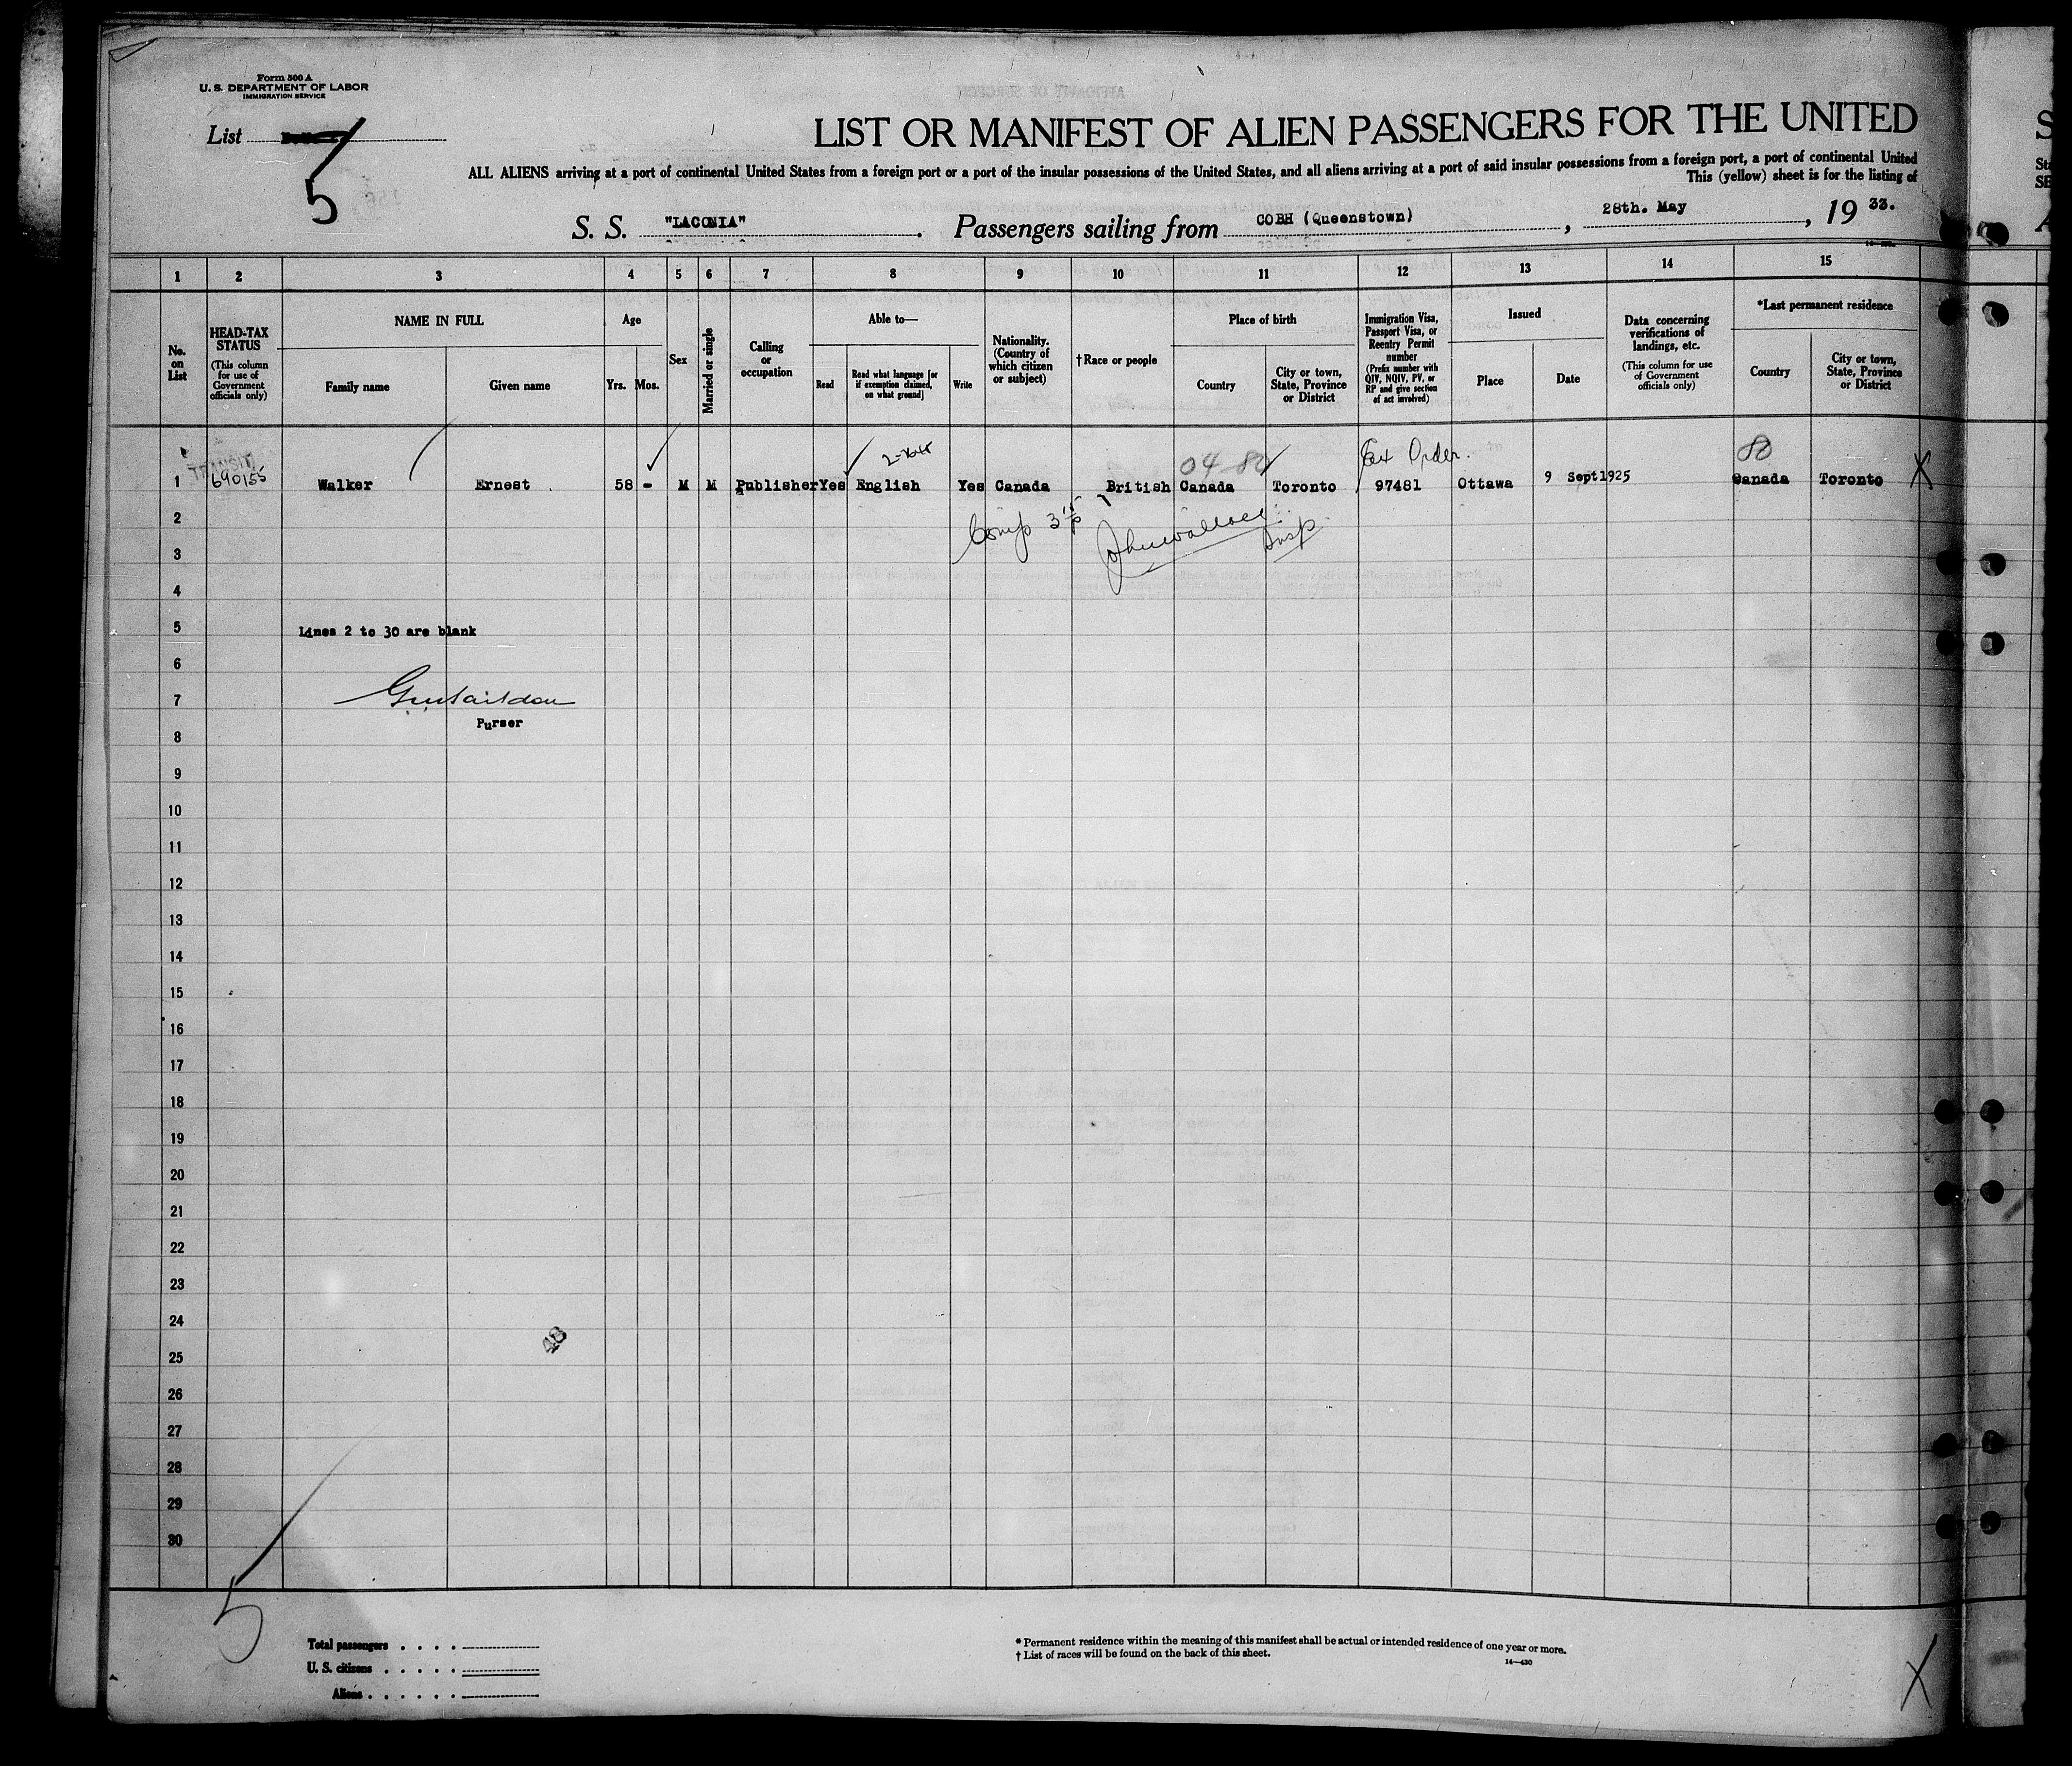 Form 500 A
U. S. DEPARTMENT OF LABOR
IMMIGRATION SERVICE
List
5
LIST OR MANIFEST OF ALIEN PASSENGERS FOR THE UNITED
ALL ALIENS arriving at a port of continental United States from a foreign port or a port of the insular possessions of the United States, and all aliens arriving at a port of said insular possessions from a foreign port, a port of continental United
This (yellow) sheet is for the listing of
S. S. "LACONIA". Passengers sailing from COBH (Queenstown), 28th. May, 19 33.
1 2 3 4 5 6 7 8 9 10 11 12 13 14 15
No. on List
HEAD-TAX STATUS
(This column for use of Government officials only)
NAME IN FULL
Family name
Given name
Age
Yrs. Mos.
Sex
Married or single
Calling or occupation
Able to—
Read
Read what language [or if exemption claimed, on what ground]
Write
Nationality. (Country of which citizen or subject)
†Race or people
Place of birth
Country
City or town, State, Province or District
Immigration Visa, Passport Visa, or Reentry Permit number
(Prefix number with QIV, NQIV, PV, or RP and give section of act involved)
Issued
Place
Date
Data concerning verifications of landings, etc.
(This column for use of Government officials only)
*Last permanent residence
Country
City or town, State, Province or District
TRANSIT
04-80
Order.
80
1 690155 Walker Ernest 58 - M M Publisher Yes English Yes Canada British Canada Toronto 97481 Ottawa 9 Sept 1925 Canada Toronto X
2
Comp
John Wallace
Insp
3
4
5 Lines 2 to 30 are blank
6
7
Purser
8
9
10
11
12
13
14
15
16
17
18
19
20
21
22
23
24
48
25
26
27
28
29
30
5
Total passengers
U. S. citizens
Aliens
* Permanent residence within the meaning of this manifest shall be actual or intended residence of one year or more.
† List of races will be found on the back of this sheet.
14—430
X